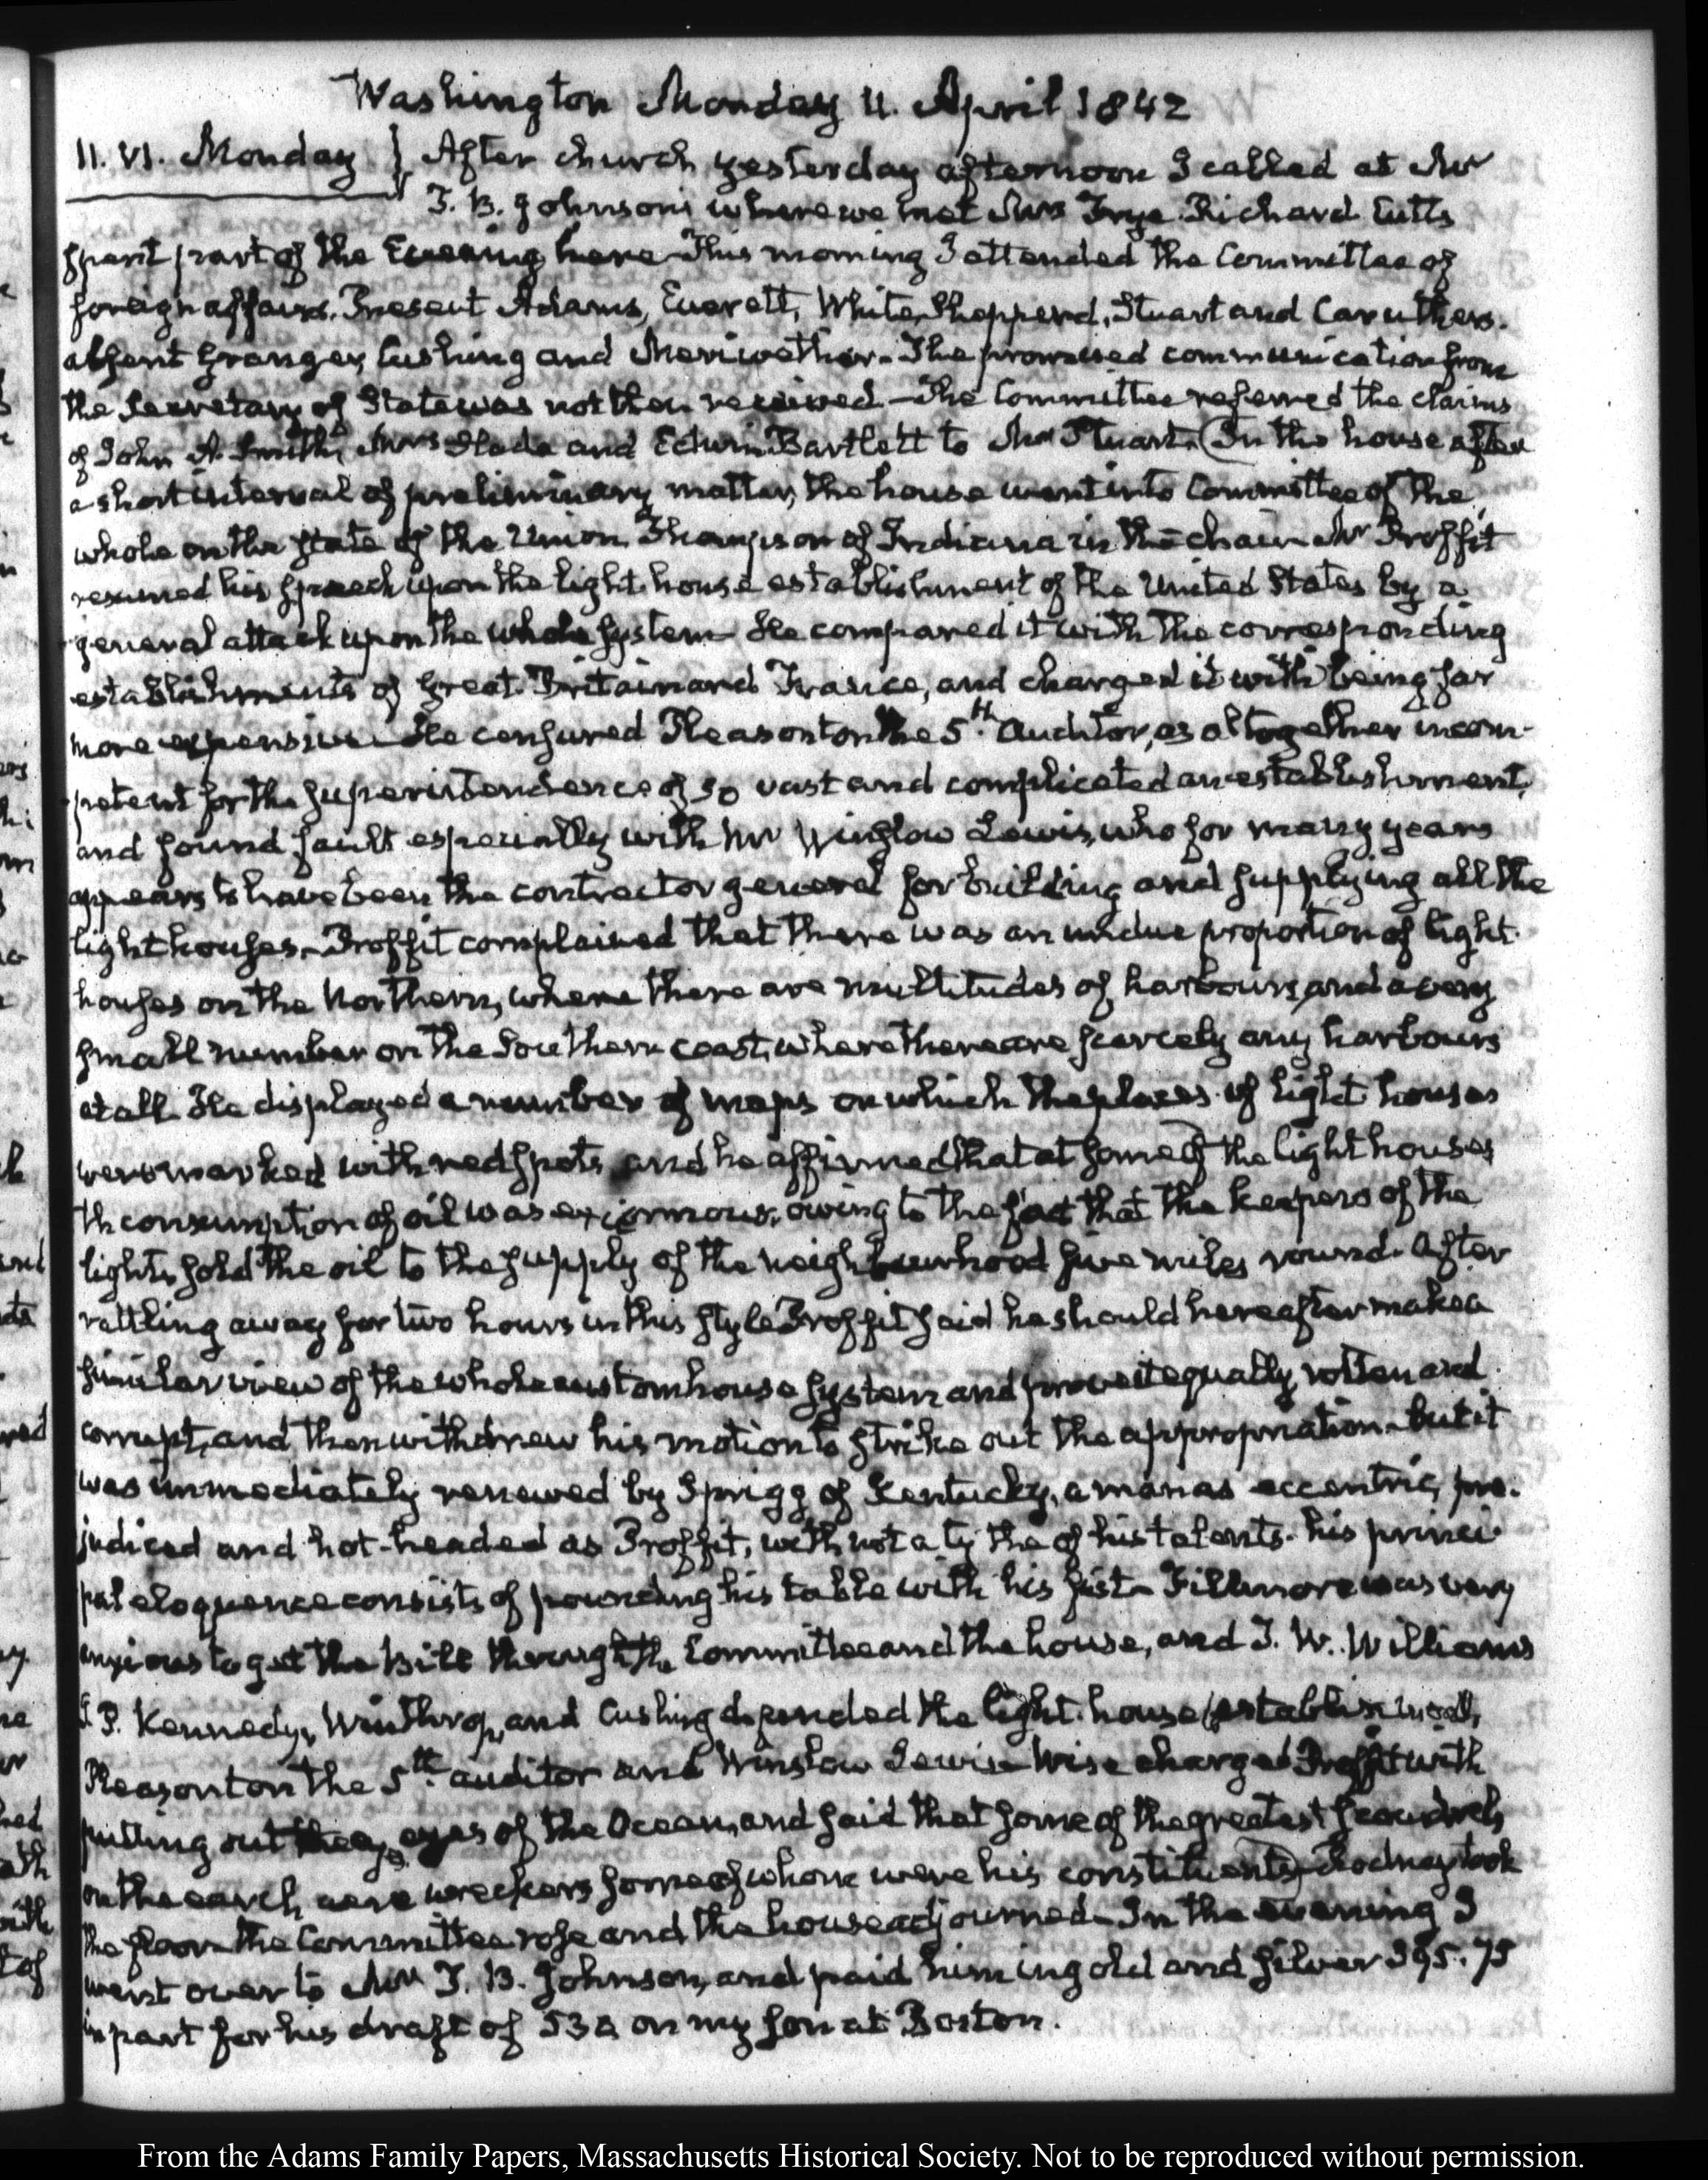 Washington Monday 11. April 1842
11. VI. Monday } After church yesterday afternoon I called at Mr
T. B. Johnson's where we met Mrs Frye. Richard Cutts
spent part of the Evening here. This morning I attended the Committee of
foreign affairs. Present Adams, Everett, White, Shepperd, Stuart and Caruthers.
absent Granger, Cushing and Meriwether. The promised communication from
the Secretary of State was not then received—The Committee referred the claims
of John A. Smith, Mrs Slade and Edwin Bartlett to Mr Stuart. (In the house after
a short interval of preliminary matter, the house went into Committee of the
whole on the state of the Union, Thompson of Indiana in the chair. Mr Proffit
resumed his speech upon the light-house establishment of the United States by a
general attack upon the whole system—He compared it with the corresponding
establishments of Great-Britain and France, and charged it with being far
more expensive—He censured Pleasonton the 5th. Auditor, as altogether incom-
petent for the superintendence of so vast and complicated an establishment,
and found fault especially with Mr Winslow Lewis, who for many years
appears to have been the contractor general for building and supplying all the
light houses. Proffit complained that there was an undue proportion of light
houses on the Northern, where there are multitudes of harbours, and a very
small number on the Southern coast, where there are scarcely any harbours
at all. He displayed a number of maps on which the places of light houses
were marked with red spots, and he affirmed that at some of the light houses
th consumption of oil was enormous, owing to the fact that the keepers of the
lights sold the oil to the supply of the neighbourhood five miles round. After
rattling away for two hours in this style Proffit said he should hereafter make a
similar view of the whole customhouse system and prove it equally rotten and
corrupt, and then withdrew his motion to strike out the appropriation—but it
was immediately renewed by Sprigg of Kentucky, a man as eccentric, pre-
judiced and hot-headed as Proffit, with not a tythe of his talents. his princi-
pal eloquence consists of pounding his table with his fist—Fillmore was very
anxious to get the Bill through the Committee and the house, and J. W. Williams
J. P. Kennedy, Winthrop, and Cushing defended the light-house establishment,
Pleasonton the 5th. auditor and Winslow Lewis—Wise charged Proffit with
putting out the eyes of the Ocean, and said that some of the greatest scoundrels
on the earth were wreckers some of whom were his constituents) Rodney took
the floor—the Committee rose and the house adjourned—In the evening I
went over to Mr T. B. Johnson, and paid him in gold and silver 395.75
in part for his draft of 530 on my son at Boston.
From the Adams Family Papers, Massachusetts Historical Society. Not to be reproduced without permission.